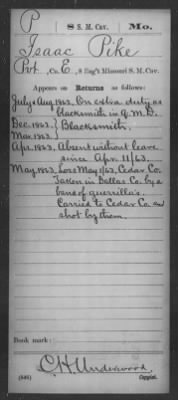 P 8 S. M. Cav. Mo.
Isaac Pike
Pvt, Co. E, 8 Reg't Missouri S. M. Cav.
Appears on Returns as follows:
July & Aug. 1863. On extra duty as
blacksmith in Q.M.D.
Dec. 1862. } Blacksmith.
Mar. 1863. }
Apr. 1863. Absent without leave
since Apr. 11/63.
May, 1863, Loss May 1/63, Cedar Co.
Taken in Dallas Co. by a
band of guerrilla's.
Carried to Cedar Co. and
shot by them.
Book mark:
C. H. Underwood,
(546) Copyist.